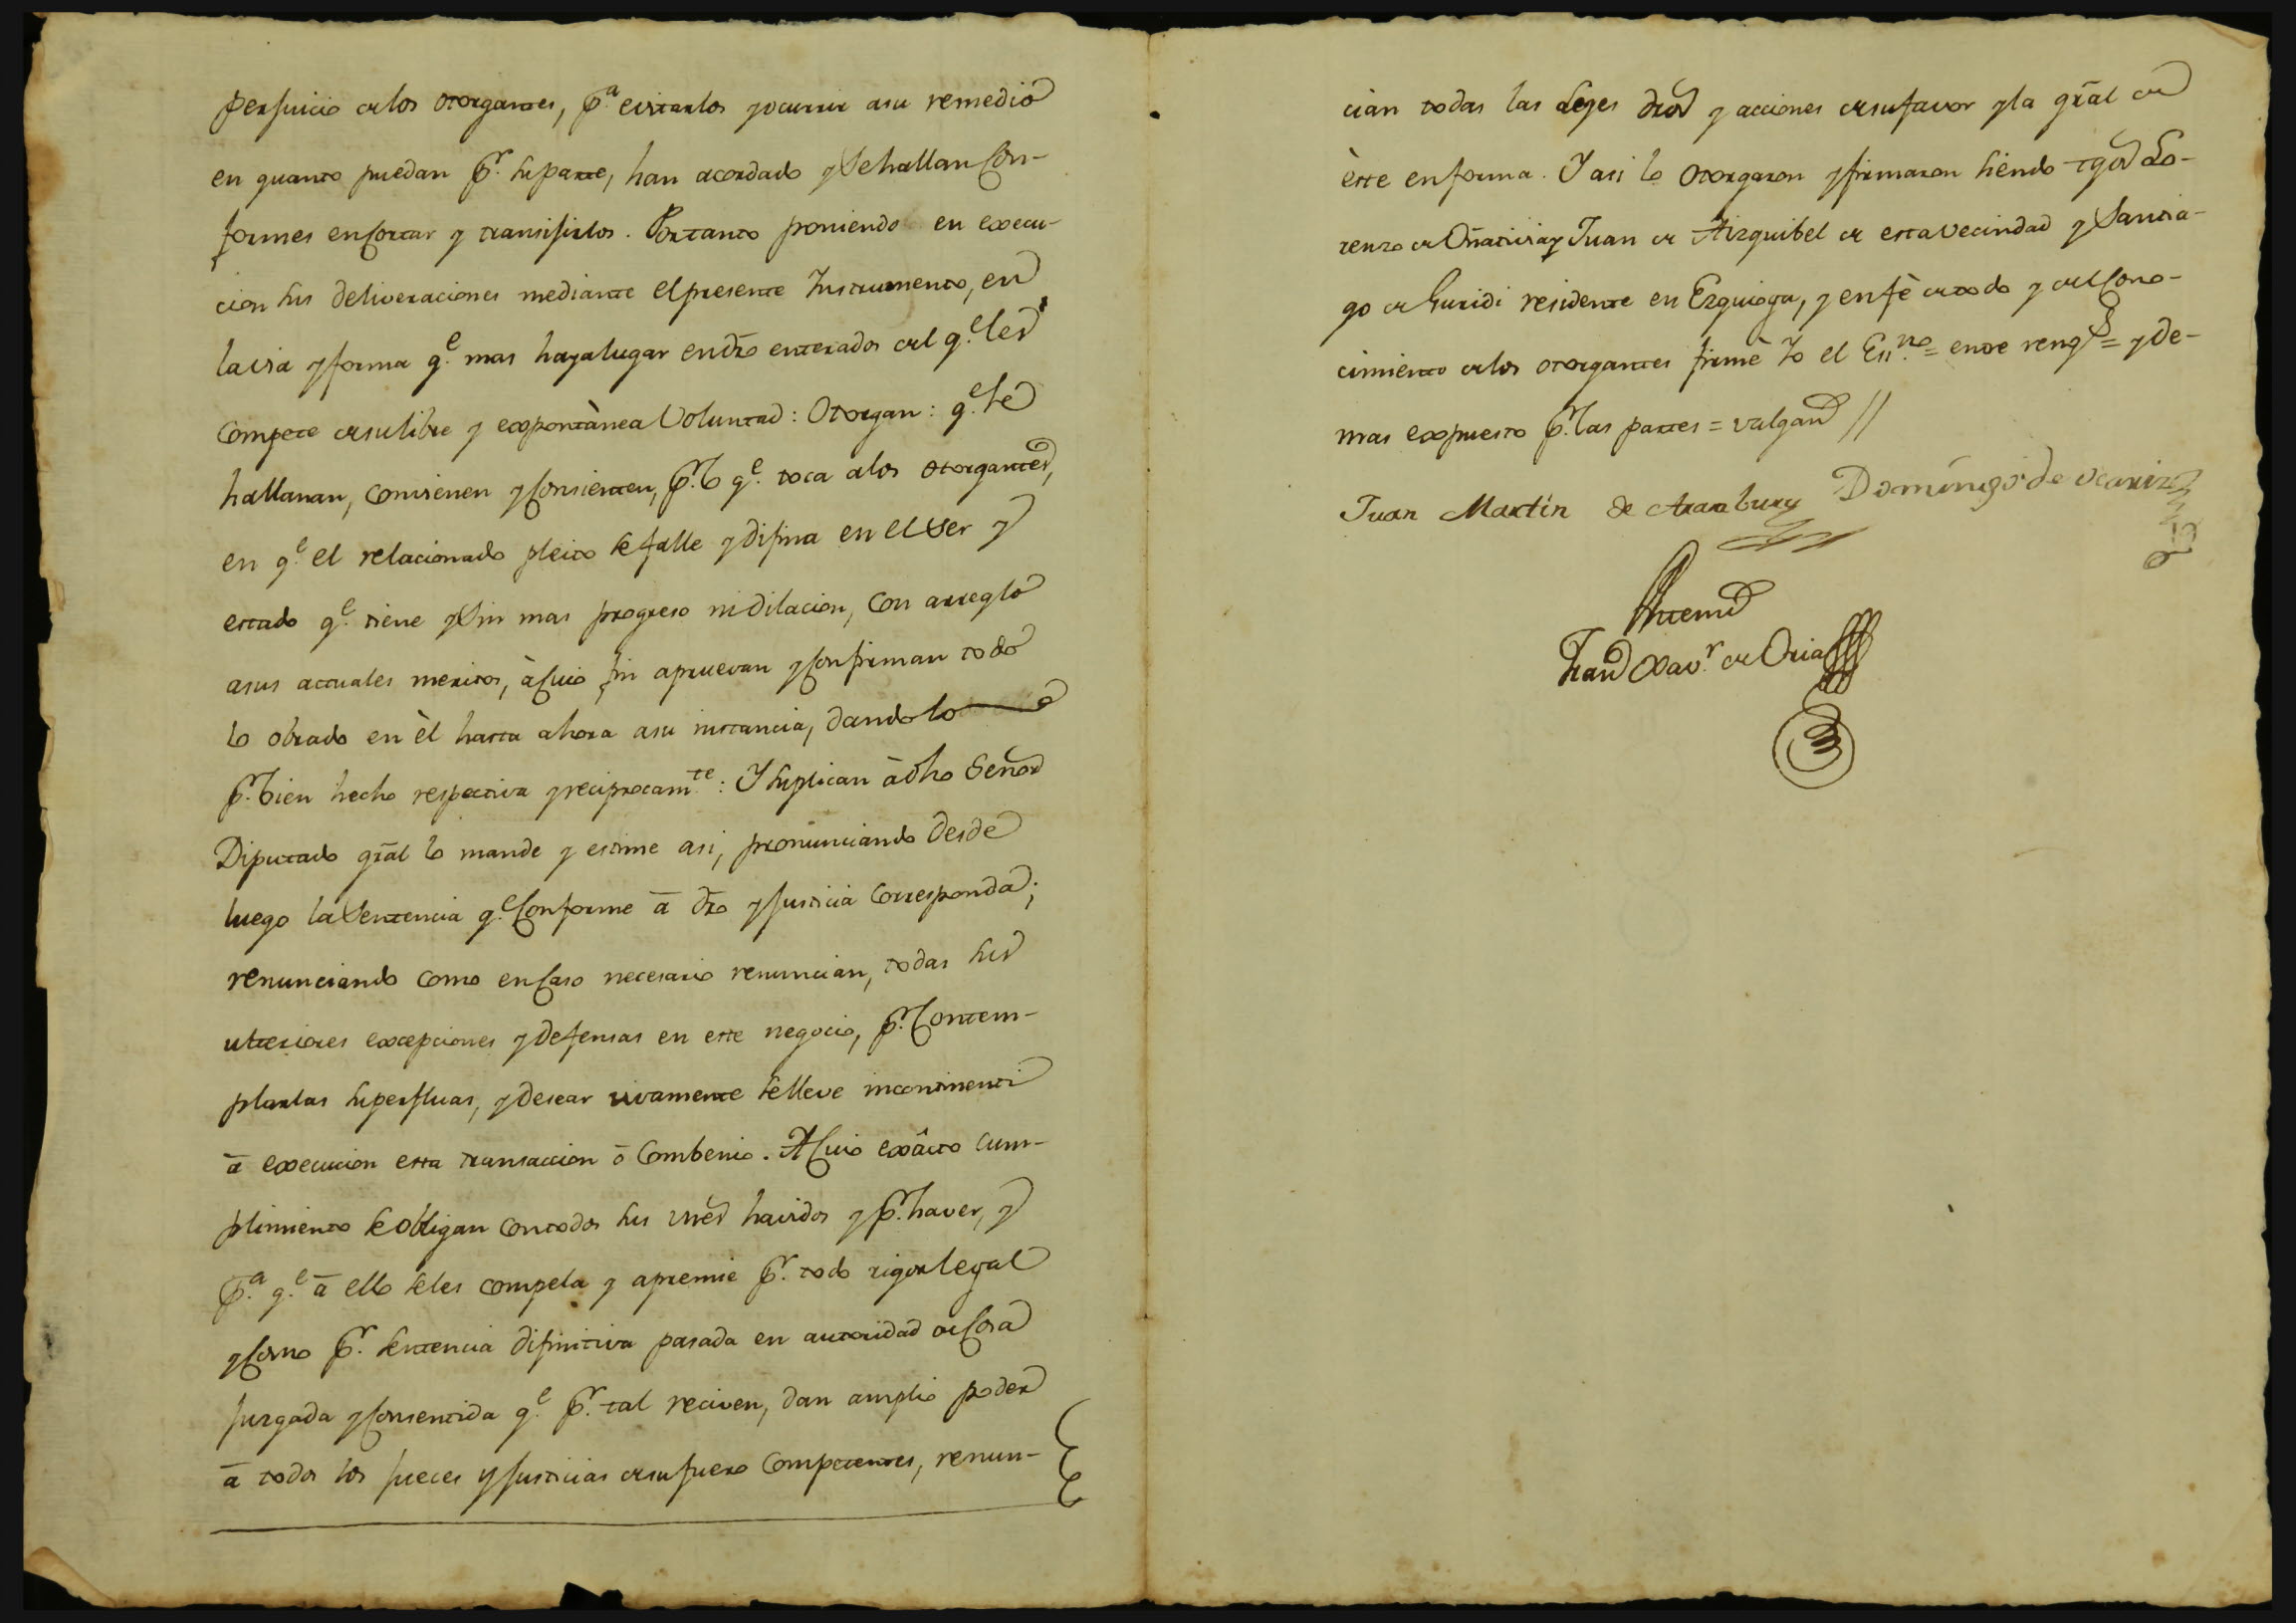 perjuicio de los otorgantes, p.ª evitarlos y ocurrir a su remedio
en quanto puedan p.r su parte, han acordado y se hallan con-
formes en cortar y transijirlos. Por tanto poniendo en execu-
cion sus deliveraciones mediante el presente Instrumento, en
la via y forma q.e mas haya lugar en dro enterados del q.e les
compete de su libre y expontànea voluntad: Otorgan: q.e se
hallanan, convienen y consienten, p.r lo q.e toca a los otorgantes,
en q.e el relacionado pleito se falle y difina en el ser y
estado q.e tiene y sin mas progreso ni dilacion, con arreglo
a sus actuales meritos, à cuio fin apruevan y confirman todo
lo obrado en èl hasta ahora a su instancia, dandolo
p.r bien hecho respectiva y reciprocam.te: Y suplican à dho Señor
Diputado gral lo mande y estime asi, pronunciando desde
luego la Sentencia q.e conforme â dro y justicia corresponda;
renunciando como en caso necesario renuncian, todas sus
ulteriores excepciones y defensas en este negocio, p.r contem-
plarlas superfluas, y desear vivamente se lleve incontinenti
â execucion esta transaccion ô combenio. A cuio exâcto cum-
plimiento se obligan con todos sus vnes havidos y p.r haver, y
p.ª q.e â ello se les compela y apremie p.r todo rigor legal
y como p.r sentencia difinitiva pasada en autoridad de cosa
juzgada y consentida q.e p.r tal reciven, dan amplio poder
â todos los jueces y justicias de su fuero competentes, renun-
cian todas las Leyes dros y acciones de su favor y la gral de
èste en forma. Y asi lo otorgaron y firmaron siendo tgos Lo-
renzo de Oñativia y Juan de Aizquibel de esta vecindad y Santia-
go de Guridi residente en Ezquioga, y en fè de todo y del cono-
cimiento de los otorgantes firmè Yo el Ess.no = entre rengs = y de-
mas expuesto p.r las partes = valgan //
Juan Martín de Aramburu Domíngo de Ocariz
Antemi
Fran Xav.r de Oria